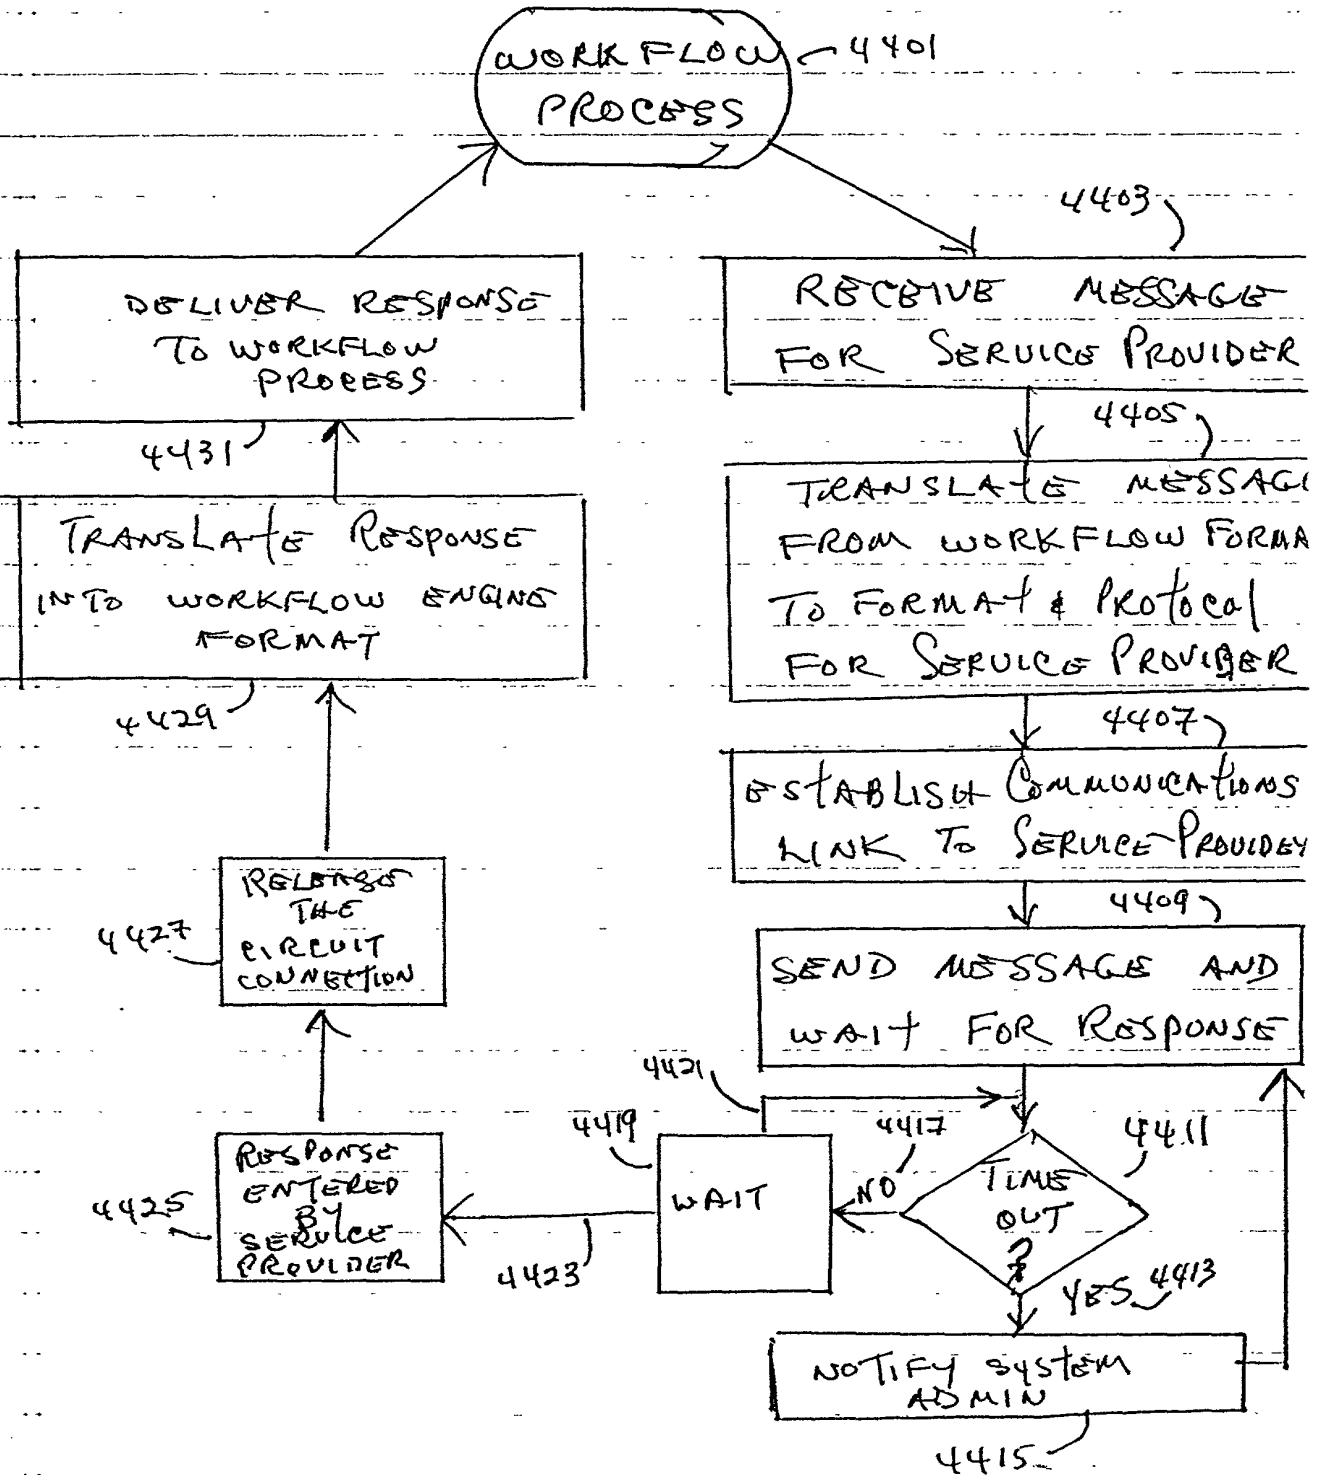 WORKFLOW
PROCESS
4401
4403
RECEIVE MESSAGE
FOR SERVICE PROVIDER
4405
TRANSLATE MESSAG
FROM WORKFLOW FORMA
TO FORMAT & PROTOCAL
FOR SERVICE PROVIDER
4407
ESTABLISH COMMUNICATIONS
LINK TO SERVICE PROVIDER
4409
SEND MESSAGE AND
WAIT FOR RESPONSE
4411
TIME
OUT
?
YES 4413
NOTIFY SYSTEM
ADMIN
4415
NO
4417
4419
WAIT
4421
4423
RESPONSE
ENTERED
BY
SERVICE
PROVIDER
4425
RELEASE
THE
CIRCUIT
CONNECTION
4427
TRANSLATE RESPONSE
INTO WORKFLOW ENGINE
FORMAT
4429
DELIVER RESPONSE
TO WORKFLOW
PROCESS
4431